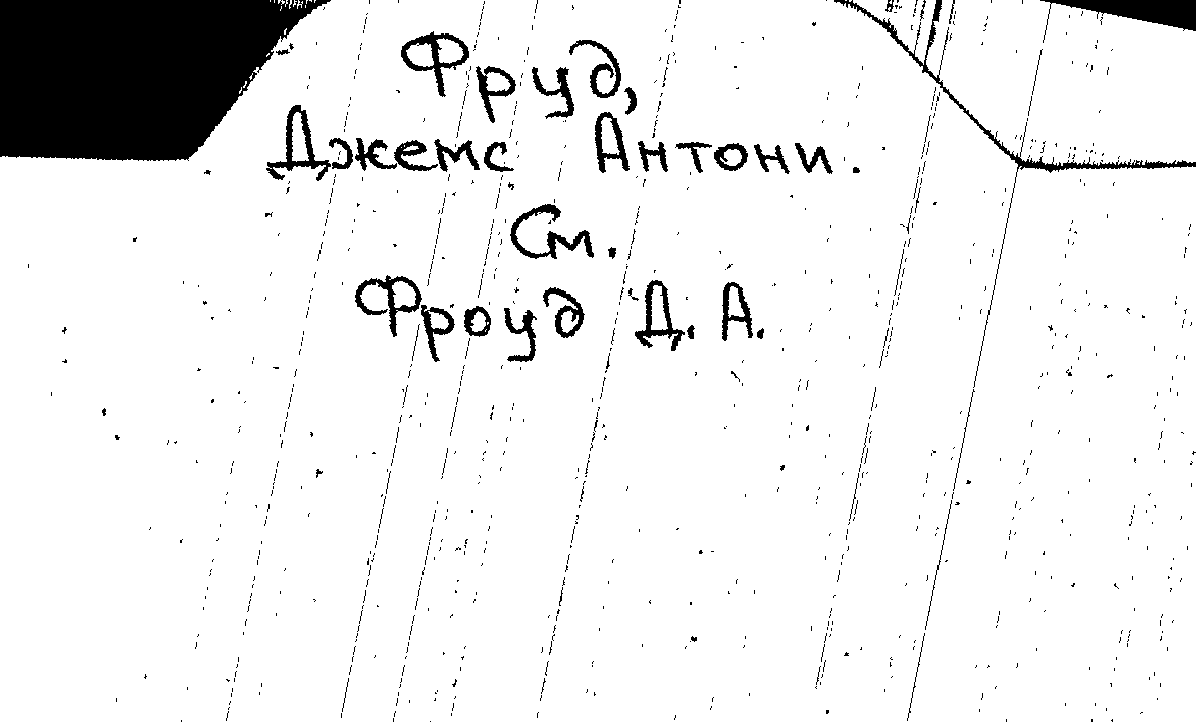 Фруд,
Джемс Антони.
См.
Фроуд Д. А.